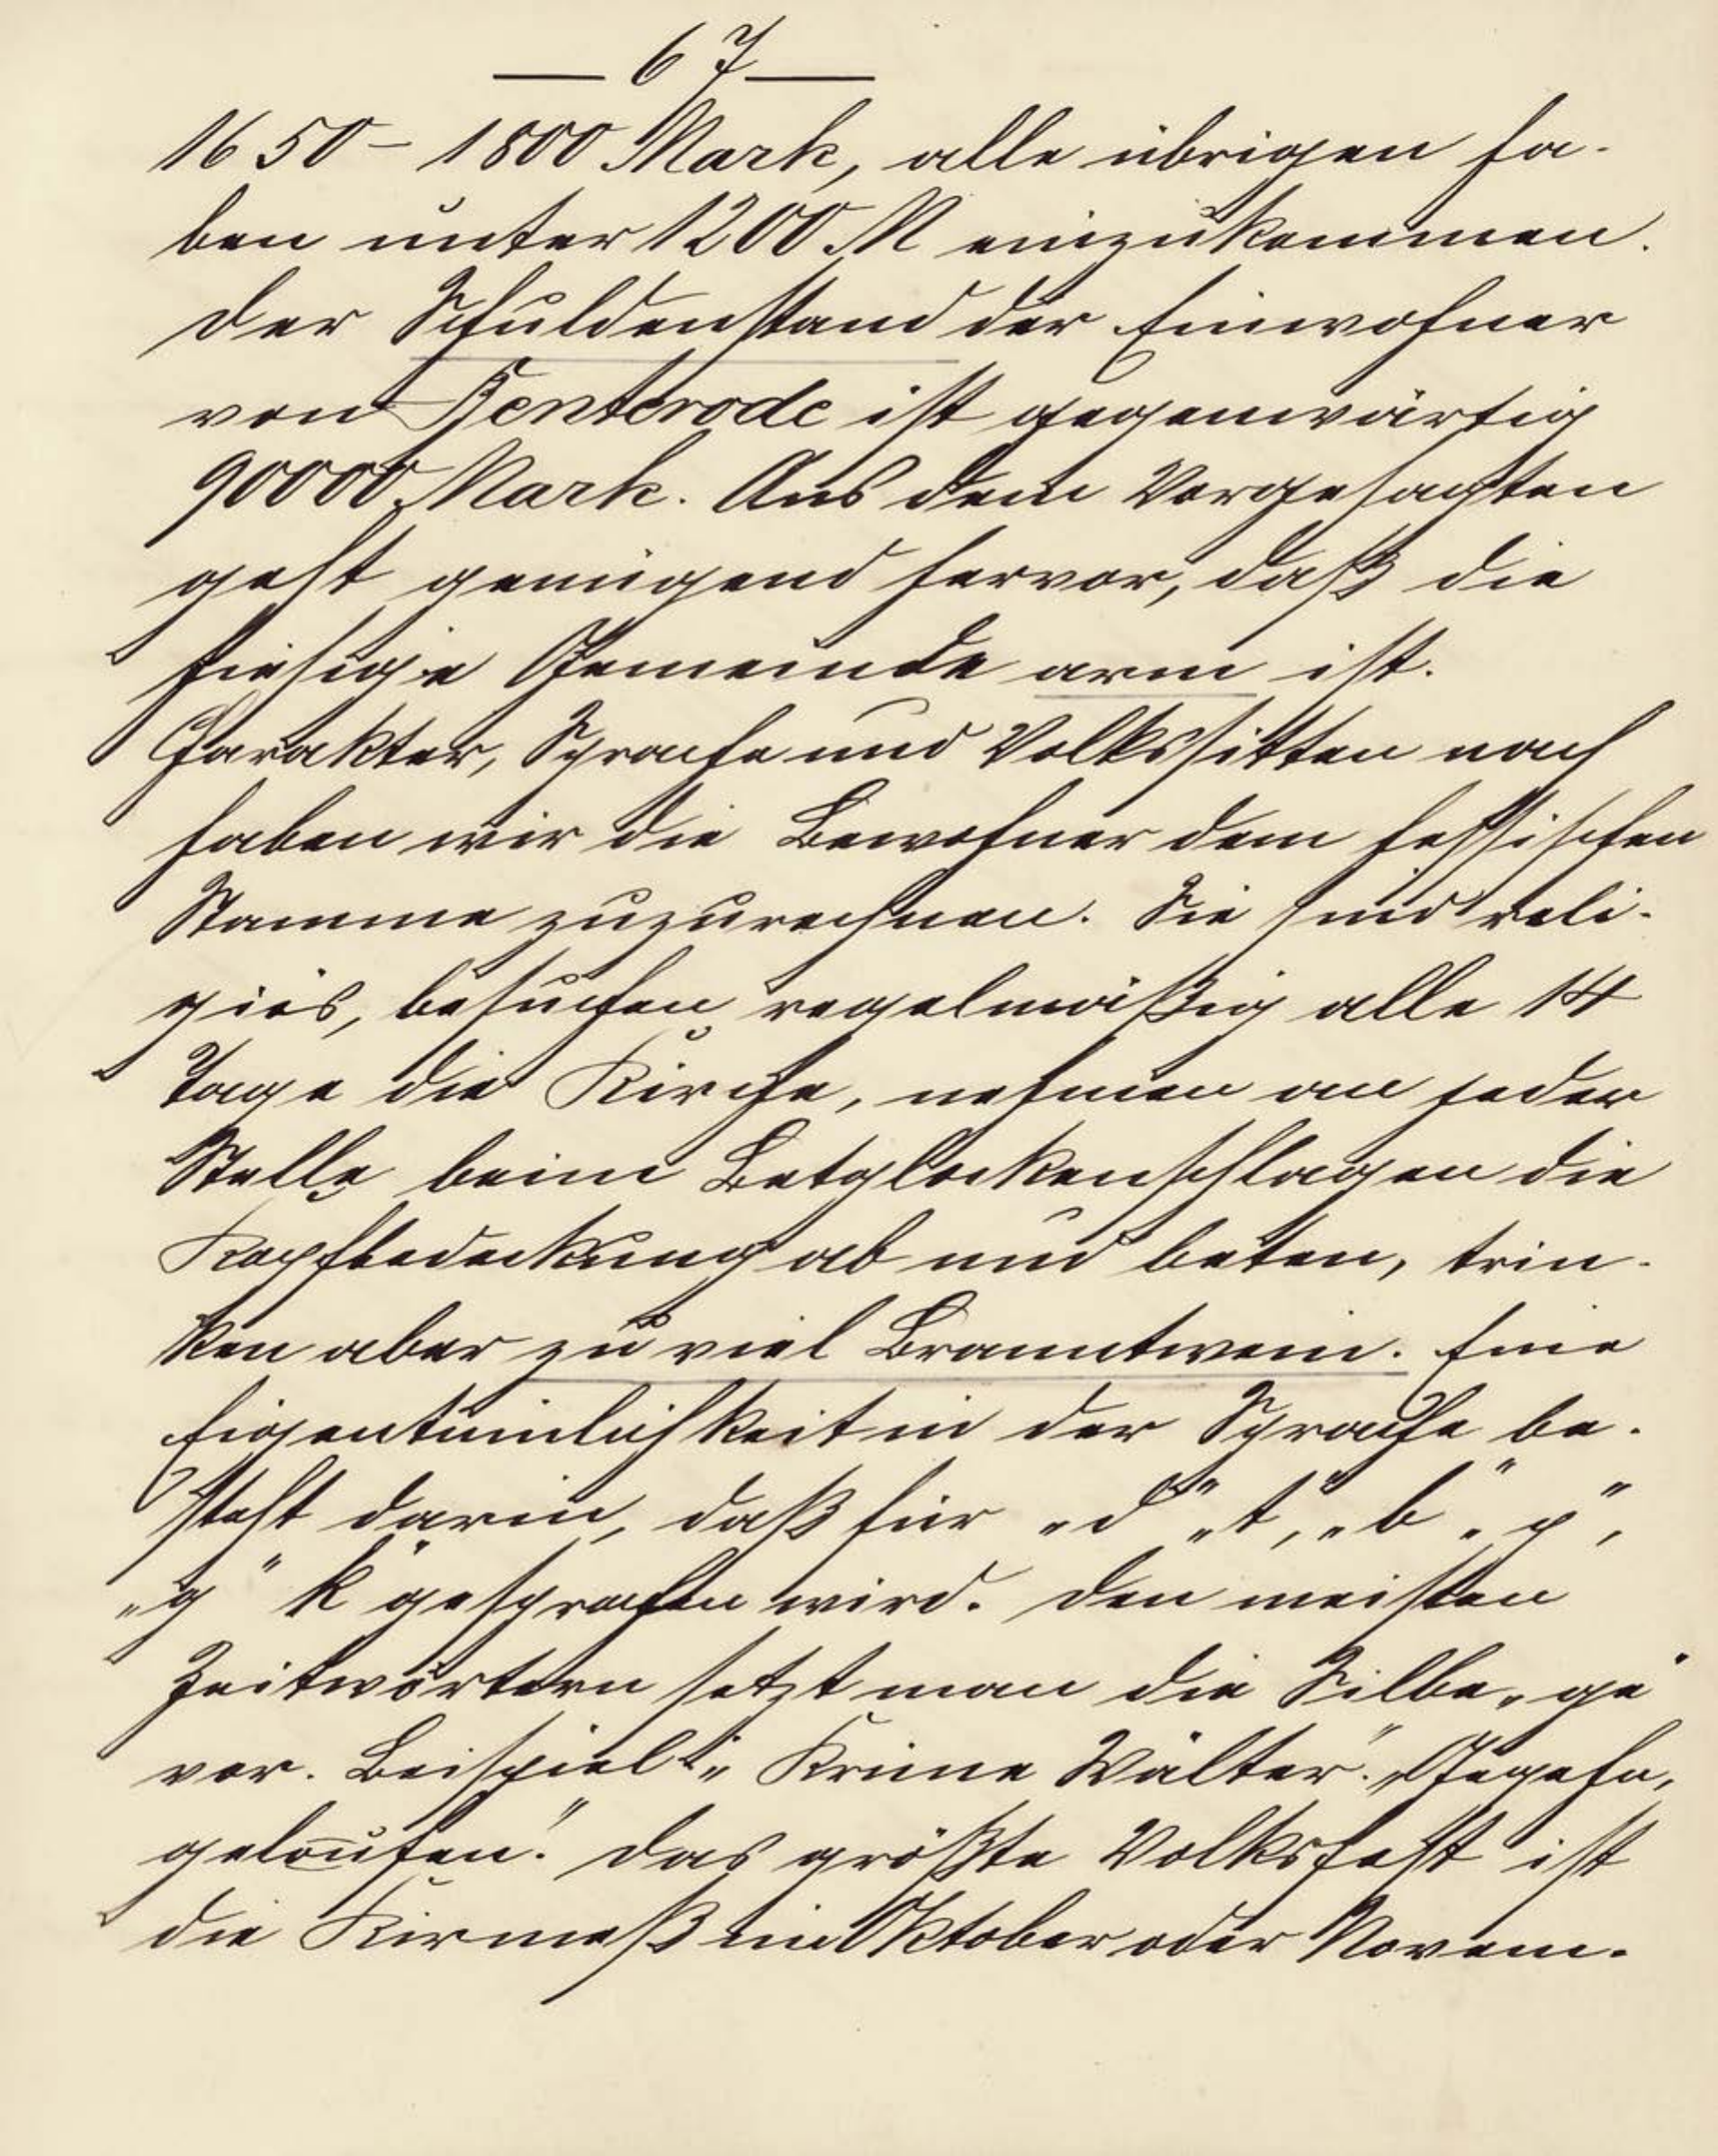 — 67 —
1650 – 1800 Mark, alle übrigen ha-
ben unter 1200 M einzukommen.
Der Schuldenstand der Einwohner
von Benterode ist gegenwärtig
90000 Mark. Aus dem Vorgesagten
geht genügend hervor, daß die
hiesige Gemeinde arm ist.
Charakter, Sprache und Volkssitten nach
haben wir die Bewohner dem hessischen
Stamme zuzurechnen. Sie sind reli-
giös, besuchen regelmäßig alle 14
Tage die Kirche, nehmen an jeder
Stelle beim Betglockenschlagen die
Kopfbedeckung ab und beten, trin-
ken aber zu viel Branntwein. Eine
Eigentümlichkeit in der Sprache be-
steht darin, daß für „d“ „t“, „b“ „p“,
„g“ k gesprochen wird. Den meisten
Zeitwörtern setzt man die Silbe „ge“
vor. Beispiel: „Krüne Wälter“. „Gegehn,
geloufen.“ Das größte Volksfest ist
die Kirmeß im Oktober oder Novem-